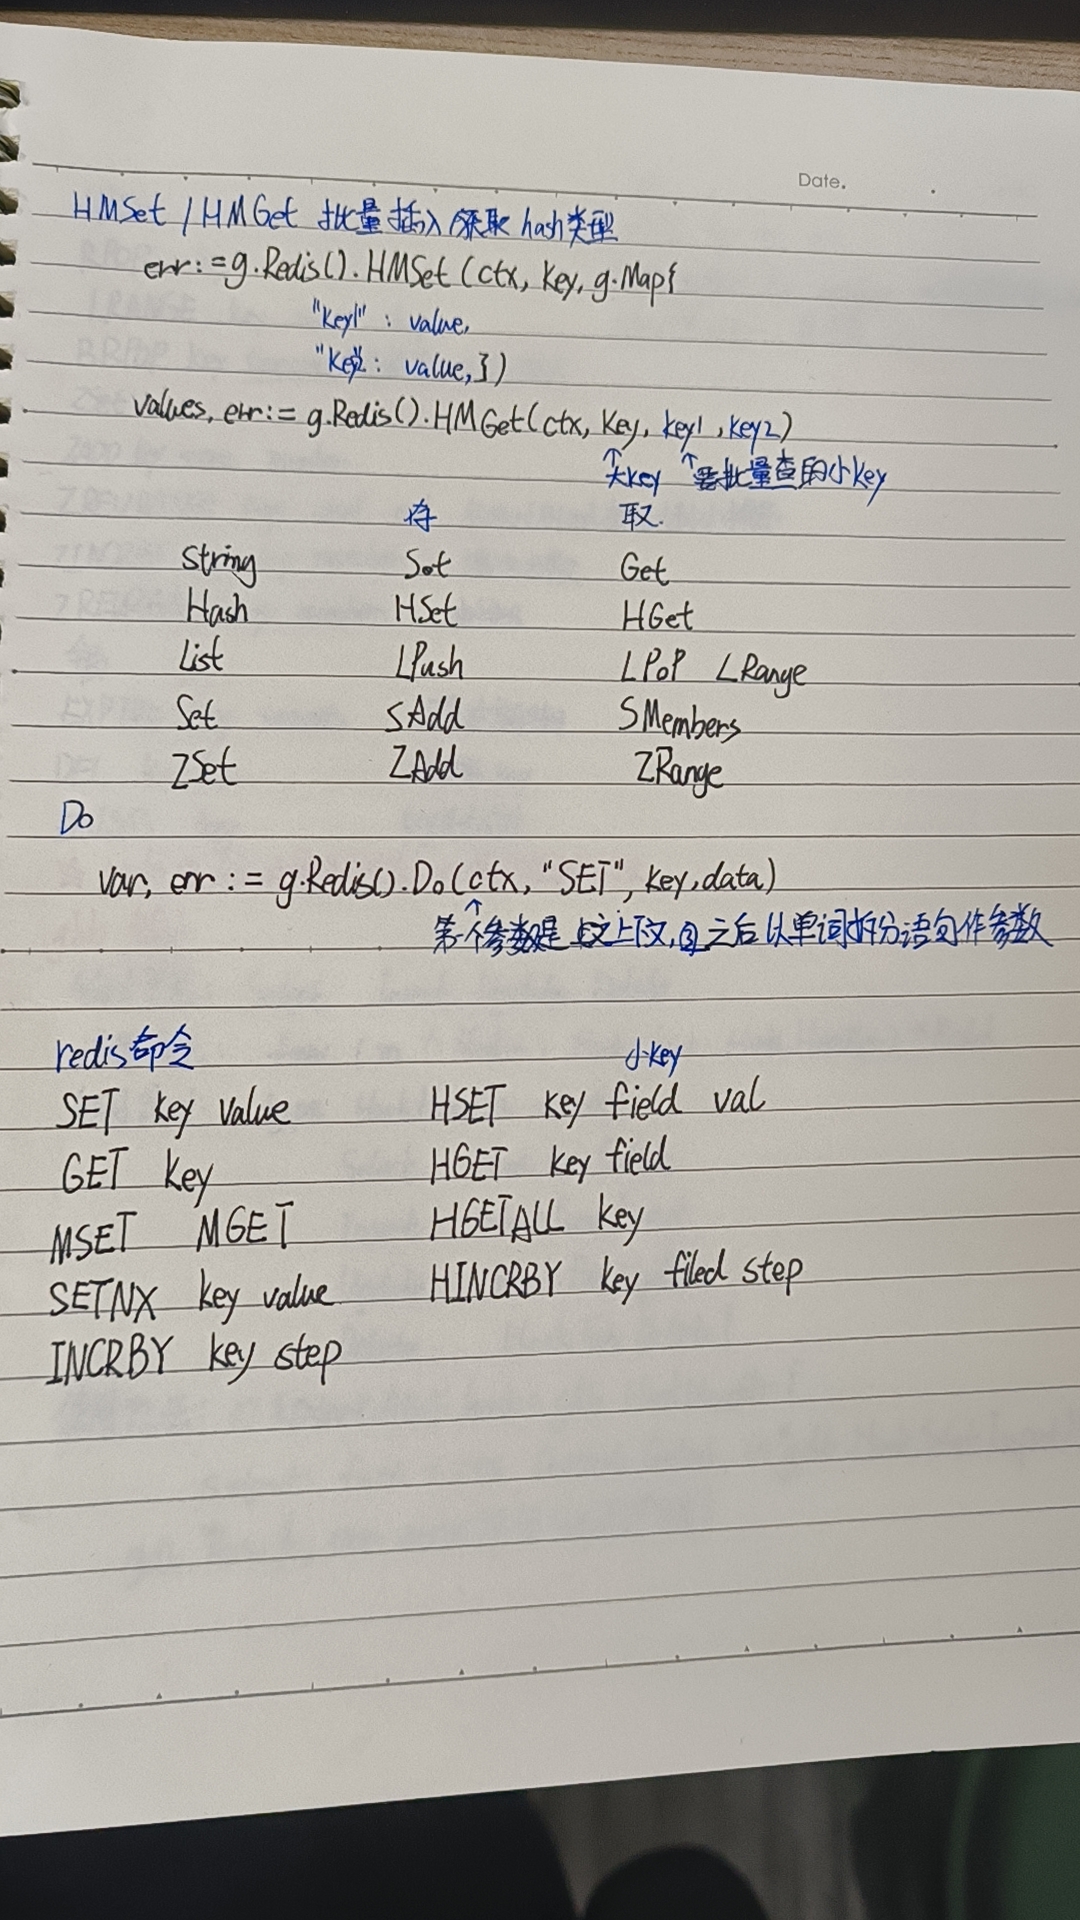 Date.
HMSet / HMGet 批量插入/获取 hash类型
err:=g.Redis().HMSet(ctx, key, g.Map{
"key1" : value,
"key2 : value,})
values, err:= g.Redis().HMGet(ctx, key, key1, key2)
↑大key ↑要批量查的小key
存 取.
String Set Get
Hash HSet HGet
List LPush LPoP LRange
Set SAdd SMembers
ZSet ZAdd ZRange
Do
var, err := g.Redis().Do(ctx, "SET", key, data)
↑
第一个参数是 上下文, 之后以单词拆分语句作参数
redis命令 小key
SET key value HSET key field val
GET key HGET key field
MSET MGET HGETALL key
SETNX key value HINCRBY key filed step
INCRBY key step